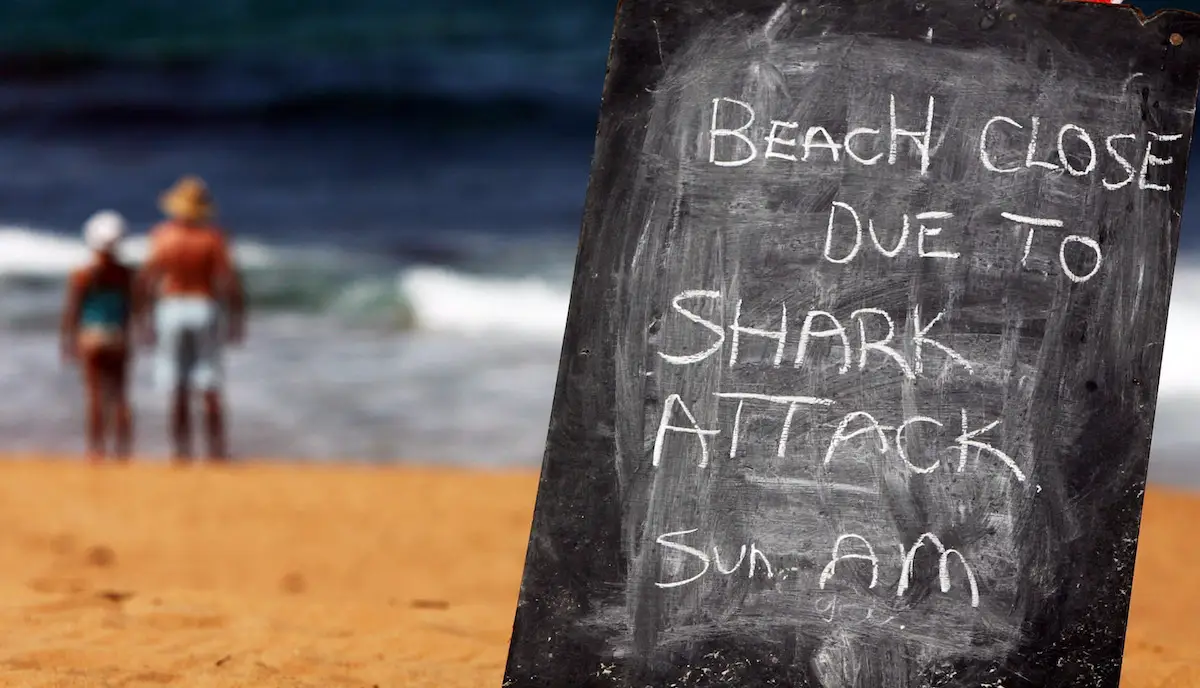 BEACH CLOSE
DUE TO
SHARK
ATTACK
Sun. AM